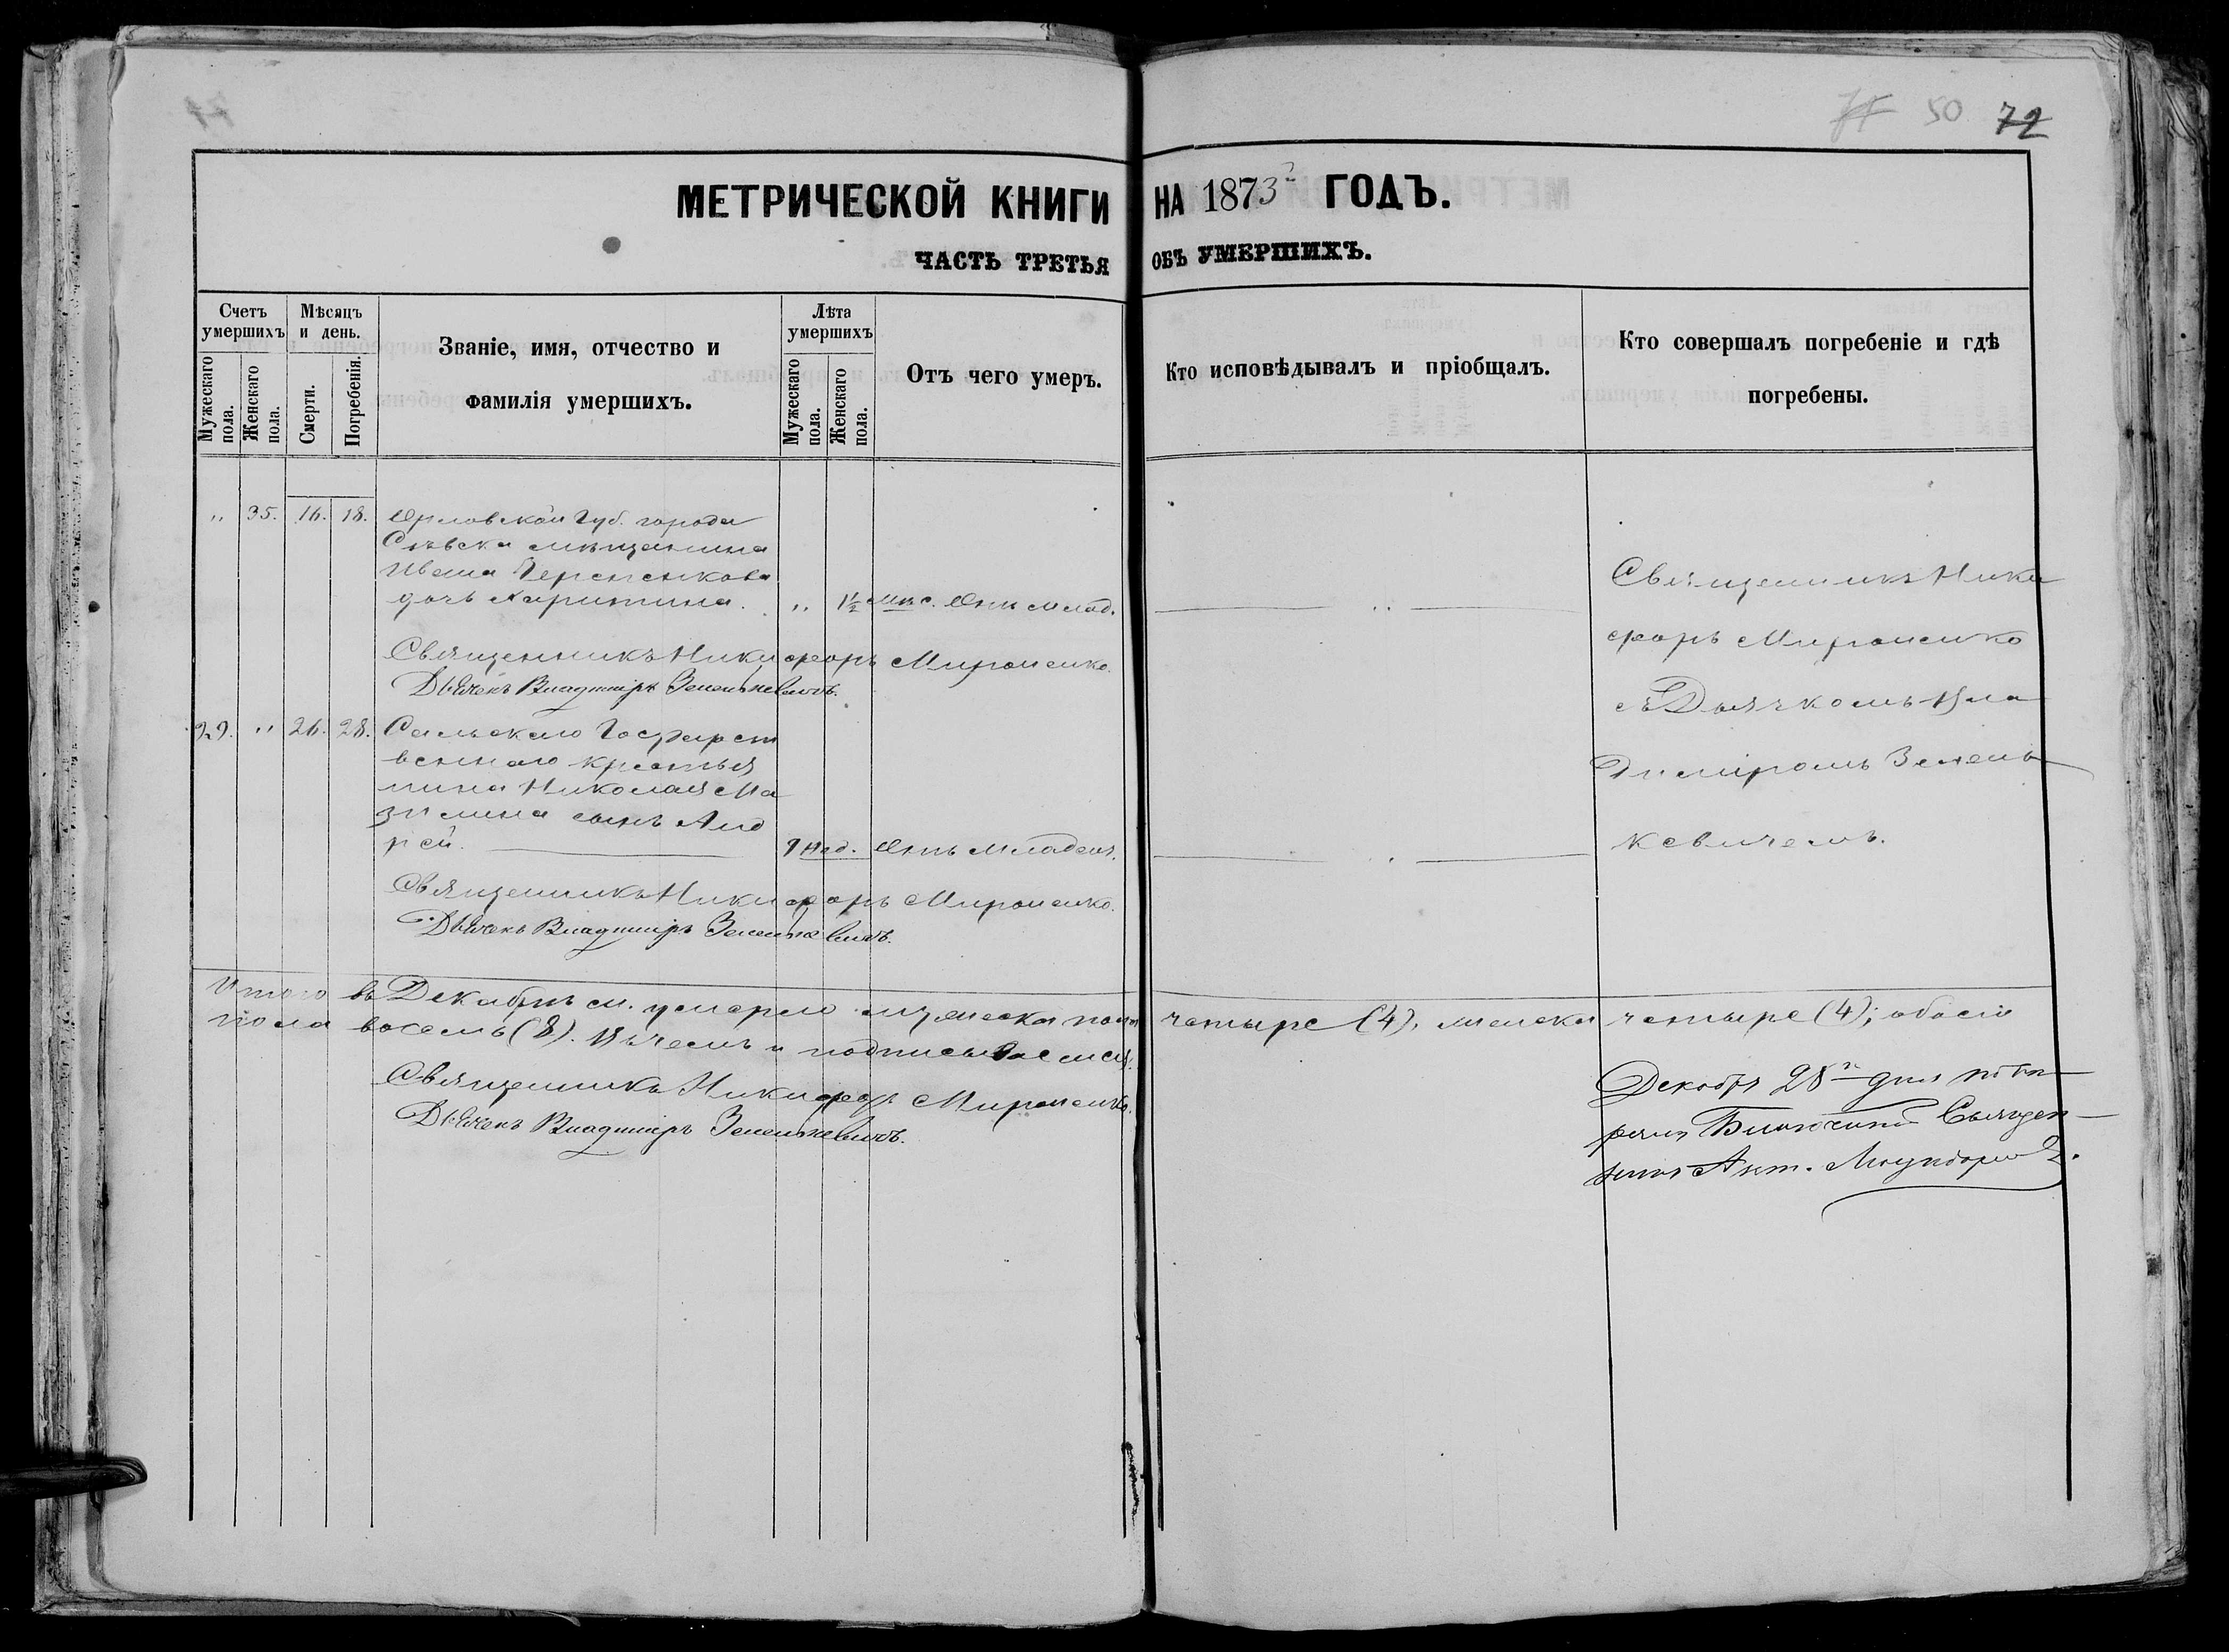 50 72
МЕТРИЧЕСКОЙ КНИГИ НА 1873 ГОДЪ.
ЧАСТЬ ТРЕТЬЯ ОБЪ УМЕРШИХЪ.
Счетъ умершихъ
Мужескаго пола.
Женскаго пола.
Мѣсяцъ и день.
Смерти.
Погребенія.
Званіе, имя, отчество и
фамилія умершихъ.
Лѣта умершихъ
Мужескаго пола.
Женскаго пола.
Отъ чего умеръ.
Кто исповѣдывалъ и пріобщалъ.
Кто совершалъ погребеніе и гдѣ
погребены.
„ 35. 16. 18. Орловской Губ. города
Сѣвска мѣщанина
Ивана
дочь Харитина. „ 1½ мѣс. Отъ млад.
Священникъ Никифоръ Мироненко.
Дьячекъ Владиміръ Зеленкевичъ.
29. „ 26. 28. Сельскаго Государст
веннаго крестья
нина Николая Ма
зилина сынъ Анд
рей. 9 нед. Отъ младенч.
Священникъ Никифоръ Мироненко.
Дьячекъ Владиміръ Зеленкевичъ.
Священникъ Ники
форъ Мироненко
съ Дьячкомъ Вла
диміромъ Зелен
кевичемъ.
Итого въ Декабрѣ м. умерло мужеска пола четыре (4), женска четыре (4); обоего
пола восемь (8). В чемъ и подписываемся:
Священникъ Никифоръ Мироненко.
Дьячекъ Владиміръ Зеленкевичъ.
Декабря 28 дня